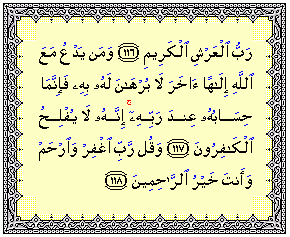 رَبُّ ٱلْعَرْشِ ٱلْكَرِيمِ ﴿١١٦﴾ وَمَن يَدْعُ مَعَ
ٱللَّهِ إِلَـٰهًا ءَاخَرَ لَا بُرْهَـٰنَ لَهُۥ بِهِۦ فَإِنَّمَا
حِسَابُهُۥ عِندَ رَبِّهِۦٓ ۚ إِنَّهُۥ لَا يُفْلِحُ
ٱلْكَـٰفِرُونَ ﴿١١٧﴾ وَقُل رَّبِّ ٱغْفِرْ وَٱرْحَمْ
وَأَنتَ خَيْرُ ٱلرَّٰحِمِينَ ﴿١١٨﴾